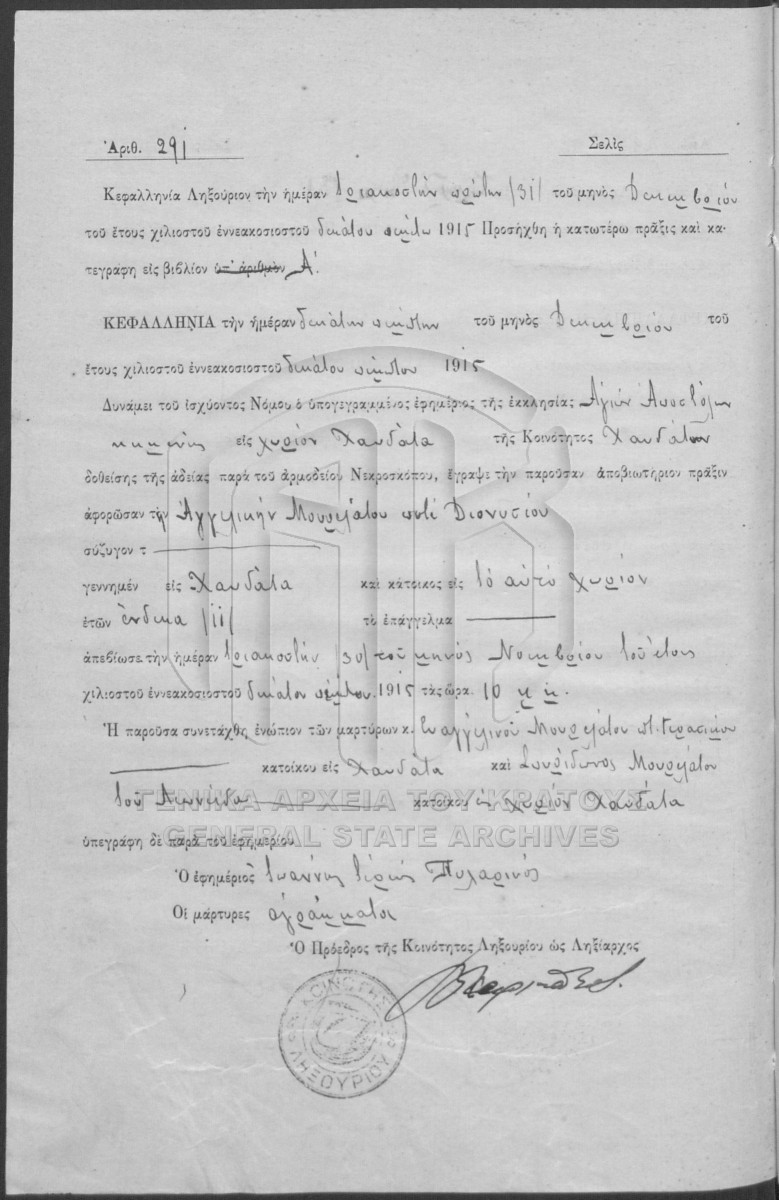 Ἀριθ. 291 Σελὶς
Κεφαλληνία Ληξούριον τὴν ἡμέραν τριακοστὴν πρώτην /31/ τοῦ μηνὸς Δεκεμβρίου
τοῦ ἔτους χιλιοστοῦ ἐννεακοσιοστοῦ δεκάτου πέμπτου 1915 Προσήχθη ἡ κατωτέρω πρᾶξις καὶ κα-
τεγράφη εἰς βιβλίον ὑπ' ἀριθμὸν Α΄.
ΚΕΦΑΛΛΗΝΙΑ τὴν ἡμέραν δεκάτην πέμπτην τοῦ μηνὸς Δεκεμβρίου τοῦ
ἔτους χιλιοστοῦ ἐννεακοσιοστοῦ δεκάτου πέμπτου 1915
Δυνάμει τοῦ ἰσχύοντος Νόμου ὁ ὑπογεγραμμένος ἐφημέριος τῆς ἐκκλησίας Ἁγίων Ἀποστόλων
κειμένης εἰς χωρίον Χαυδάτα τῆς Κοινότητος Χαυδάτων
δοθείσης τῆς ἀδείας παρὰ τοῦ ἁρμοδείου Νεκροσκόπου, ἔγραψε τὴν παροῦσαν ἀποβιωτήριον πρᾶξιν
ἀφορῶσαν τὴν Ἀγγελικὴν Μουρελάτου ποτὲ Διονυσίου
σύζυγον τ
γεννημέν εἰς Χαυδάτα καὶ κάτοικος εἰς τὸ αὐτὸ χωρίον
ἐτῶν ἕνδεκα /11/ τὸ ἐπάγγελμα
ἀπεβίωσε τὴν ἡμέραν τριακοστὴν /30/ τοῦ μηνὸς Νοεμβρίου τοῦ ἔτους
χιλιοστοῦ ἐννεακοσιοστοῦ δεκάτου πέμπτου 1915 τὰς ὥρα. 10 μ.μ.
Ἡ παροῦσα συνετάχθη ἐνώπιον τῶν μαρτύρων κ. Εὐαγγελινοῦ Μουρελάτου π. Γερασίμου
κατοίκου εἰς Χαυδάτα καὶ Σπυρίδωνος Μουρελάτου
τοῦ Λεωνίδα κατοίκου εἰς χωρίον Χαυδάτα
ὑπεγράφη δὲ παρὰ τοῦ ἐφημερίου
Ὁ ἐφημέριος Ἰωάννης ἱερεὺς Πυλαρινός
Οἱ μάρτυρες ἀγράμματοι
Ὁ Πρόεδρος τῆς Κοινότητος Ληξουρίου ὡς Ληξίαρχος
ΚΟΙΝΟΤΗΣ
ΛΗΞΟΥΡΙΟΥ
ΓΕΝΙΚΑ ΑΡΧΕΙΑ ΤΟΥ ΚΡΑΤΟΥΣ
GENERAL STATE ARCHIVES